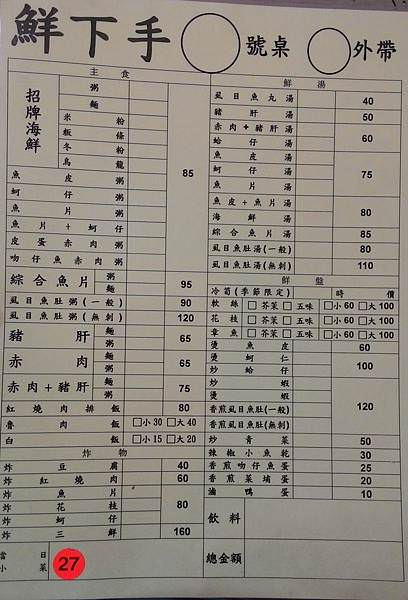 鮮下手 號桌 外帶
主食
招牌海鮮 粥 85
麵
米粉
粄條
冬粉
烏龍
魚皮粥
蚵仔粥
魚片粥
魚片+蚵仔
皮蛋赤肉粥
吻仔魚赤肉粥
綜合魚片 粥 麵 95
虱目魚肚粥(一般) 90
虱目魚肚粥(無刺) 120
豬肝 麵 粥 65
赤肉 麵 粥 65
赤肉+豬肝 麵 粥 75
紅燒肉排飯 80
魯肉飯 □小30 □大40
白飯 □小15 □大20
炸物
炸豆腐 40
炸紅燒肉 60
炸魚片 80
炸花枝
炸蚵仔
炸三鮮 160
當日小菜 27
鮮湯
虱目魚丸湯 40
豬肝湯 50
赤肉+豬肝湯 60
蛤仔湯
魚皮湯 75
蚵仔湯
魚片湯
魚皮+魚片湯 80
海鮮湯
綜合魚片湯 85
虱目魚肚湯(一般) 80
虱目魚肚湯(無刺) 110
鮮盤
冷筍(季節限定) 時價
軟絲 □芥茉 □五味 □小60 □大100
花枝 □芥茉 □五味 □小60 □大100
章魚 □芥茉 □五味 □小60 □大100
燙魚皮 60
燙蚵仁 100
炒蛤仔
炒蝦 120
燙蝦
香煎虱目魚肚(一般)
香煎虱目魚肚(無刺)
炒青菜 50
辣椒小魚乾 30
香煎吻仔魚蛋 25
香煎菜埔蛋 20
滷鴨蛋 10
飲料
總金額